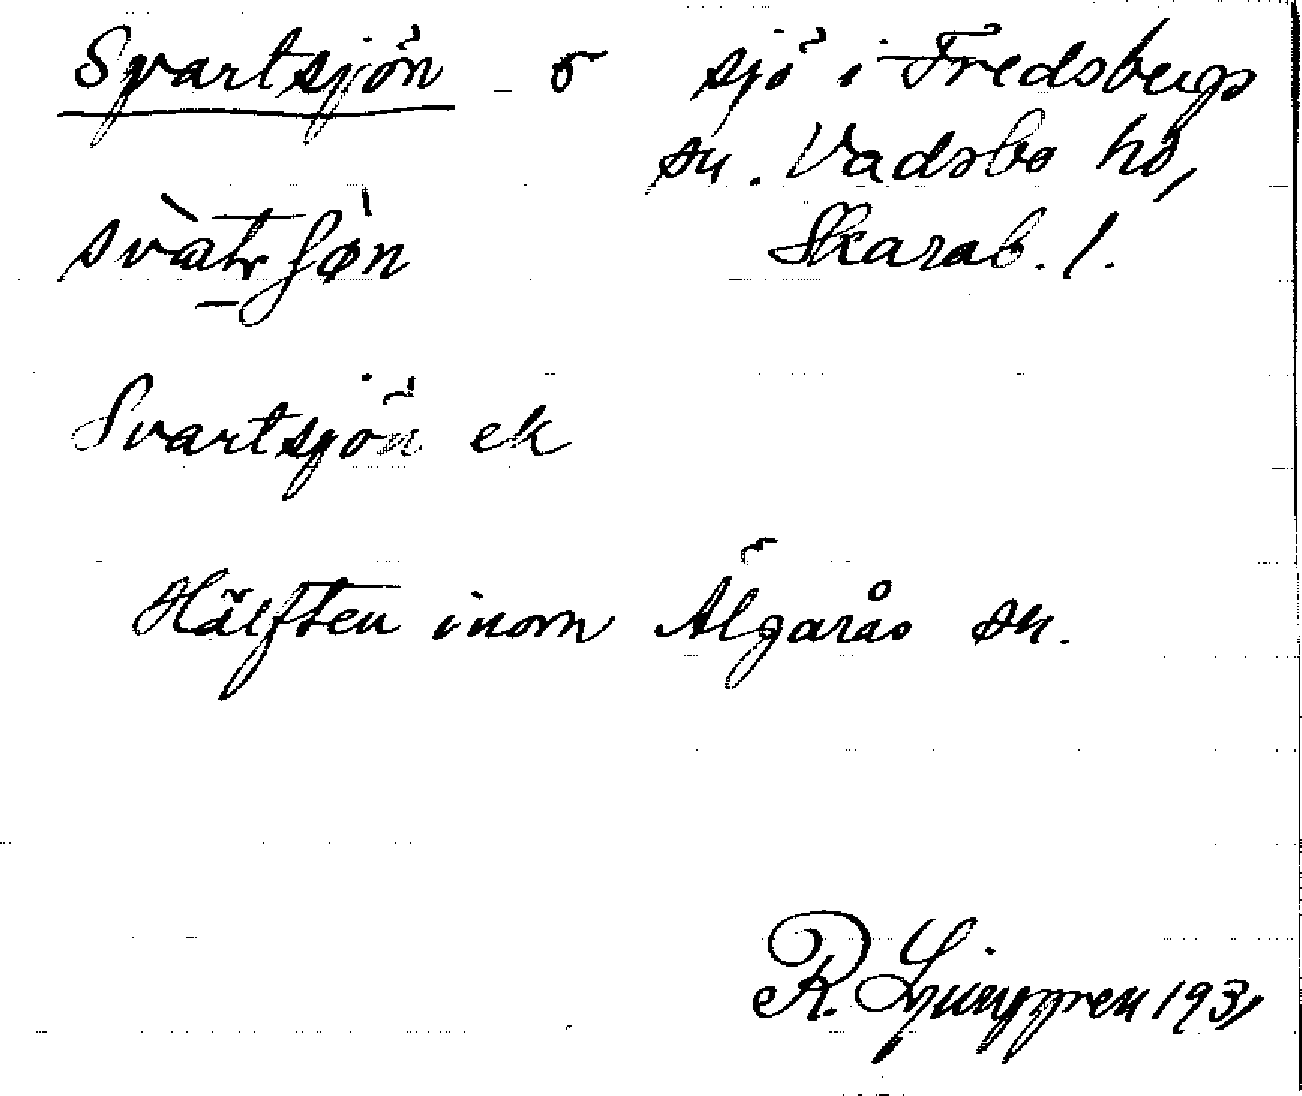 Svartsjön - 5 sjö i Fredsbergs
sn. Vadsbo hd,
svàtʃø̀n Skarab. l.
Svartsjön ek
Hälften inom Älgarås sn.
R. Ljunggren 193